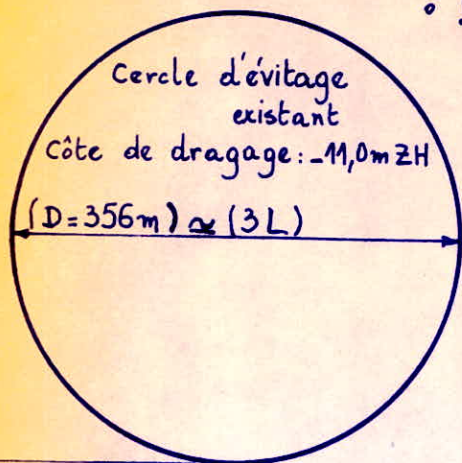 Cercle d'évitage
existant
Côte de dragage:-11,0m ZH
(D=356m) ≃ (3L)